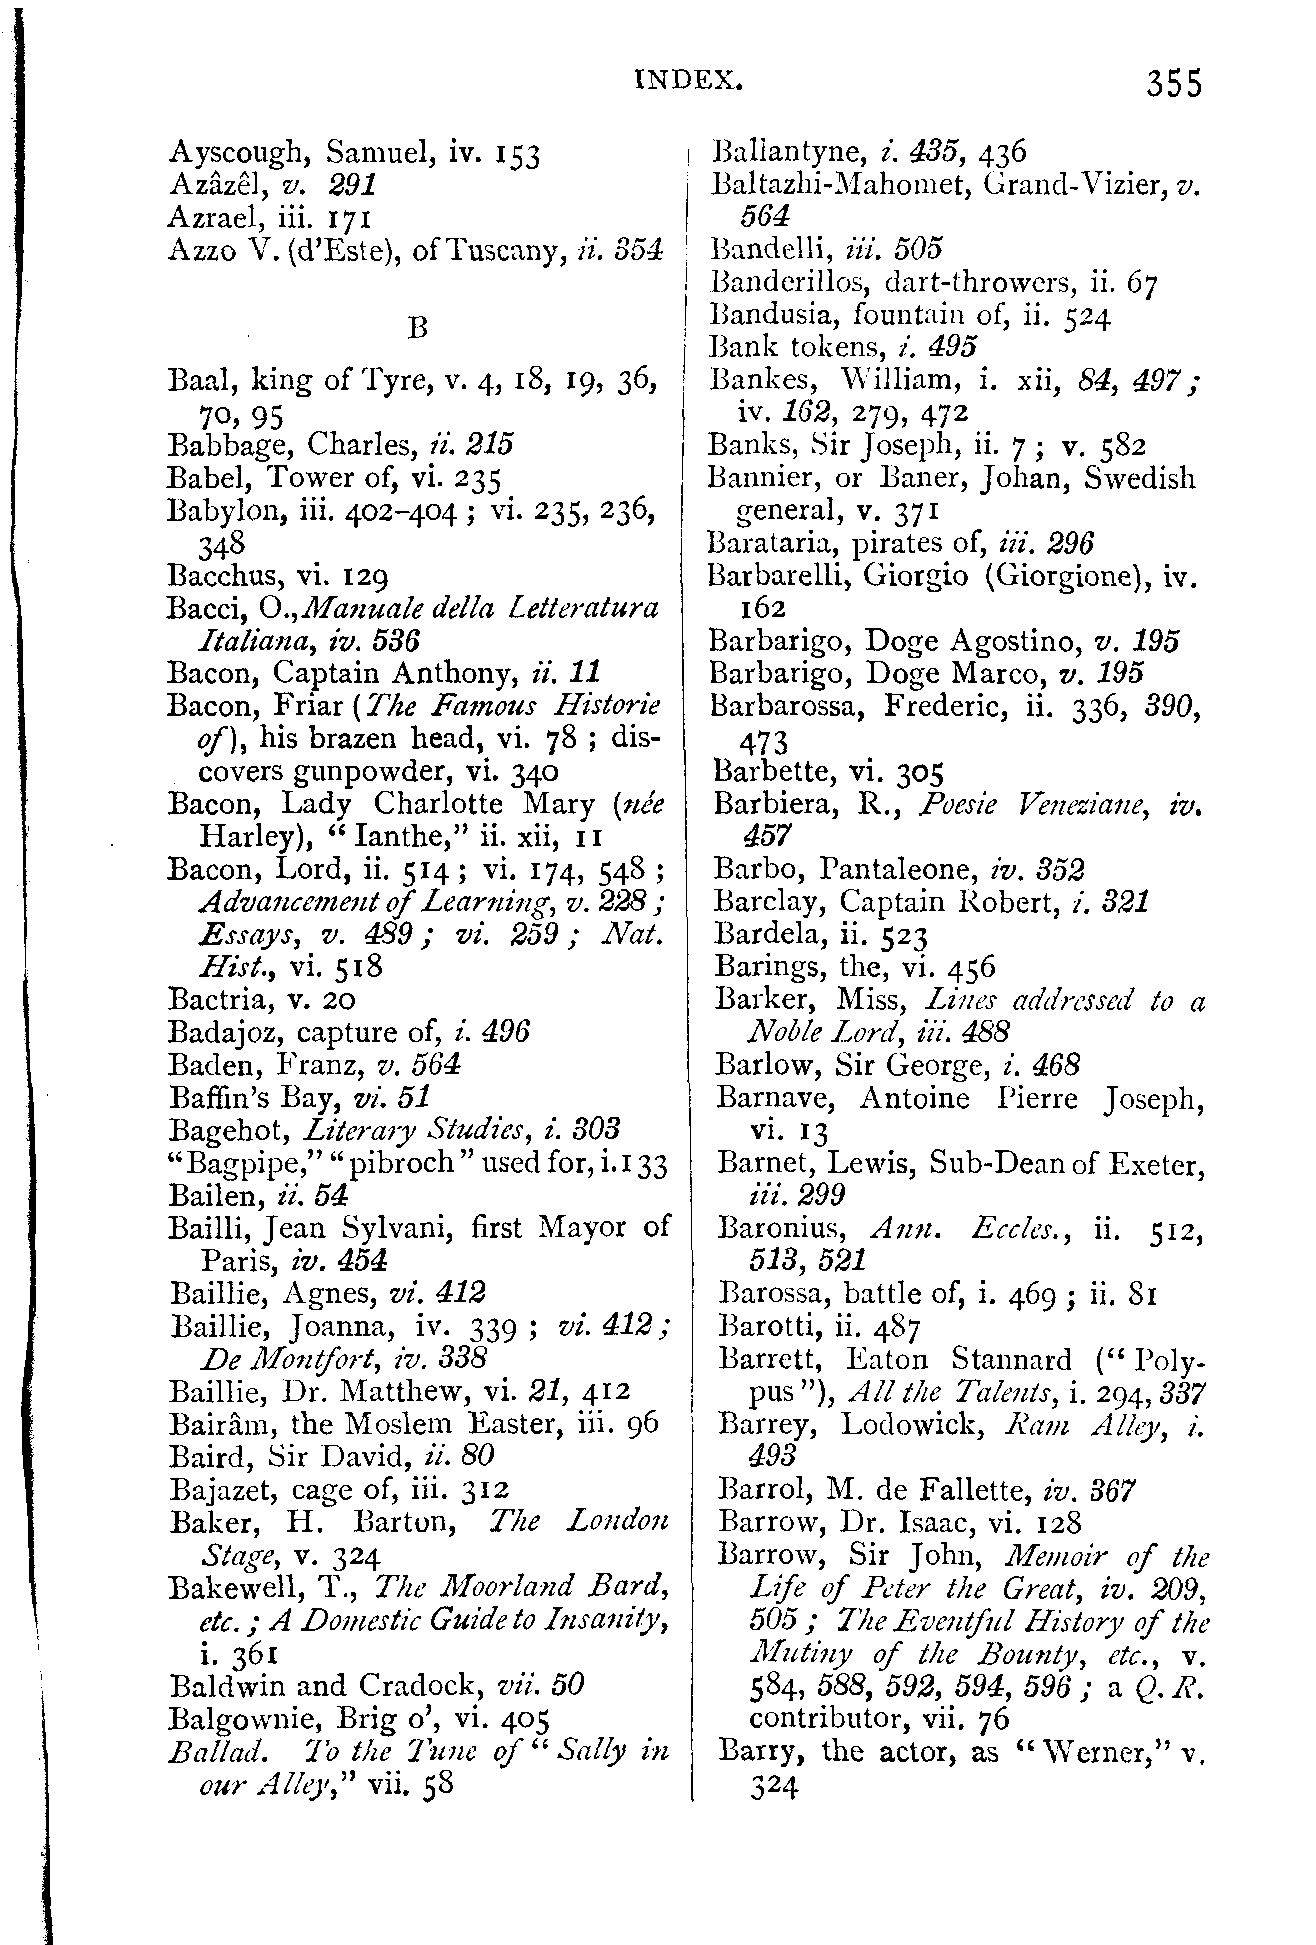 INDEX. 355
Ayscough, Samuel, iv. 153
Azâzêl, v. 291
Azrael, iii. 171
Azzo V. (d'Este), of Tuscany, ii. 354
B
Baal, king of Tyre, v. 4, 18, 19, 36,
70, 95
Babbage, Charles, ii. 215
Babel, Tower of, vi. 235
Babylon, iii. 402-404 ; vi. 235, 236,
348
Bacchus, vi. 129
Bacci, O., Manuale della Letteratura
Italiana, iv. 536
Bacon, Captain Anthony, ii. 11
Bacon, Friar (The Famous Historie
of), his brazen head, vi. 78 ; dis-
covers gunpowder, vi. 340
Bacon, Lady Charlotte Mary (née
Harley), "Ianthe," ii. xii, 11
Bacon, Lord, ii. 514 ; vi. 174, 548 ;
Advancement of Learning, v. 228 ;
Essays, v. 489 ; vi. 259 ; Nat.
Hist., vi. 518
Bactria, v. 20
Badajoz, capture of, i. 496
Baden, Franz, v. 564
Baffin's Bay, vi. 51
Bagehot, Literary Studies, i. 303
"Bagpipe," "pibroch" used for, i. 133
Bailen, ii. 54
Bailli, Jean Sylvani, first Mayor of
Paris, iv. 454
Baillie, Agnes, vi. 412
Baillie, Joanna, iv. 339 ; vi. 412 ;
De Montfort, iv. 338
Baillie, Dr. Matthew, vi. 21, 412
Bairâm, the Moslem Easter, iii. 96
Baird, Sir David, ii. 80
Bajazet, cage of, iii. 312
Baker, H. Barton, The London
Stage, v. 324
Bakewell, T., The Moorland Bard,
etc. ; A Domestic Guide to Insanity,
i. 361
Baldwin and Cradock, vii. 50
Balgownie, Brig o', vi. 405
Ballad. To the Tune of "Sally in
our Alley," vii. 58
Ballantyne, i. 435, 436
Baltazhi-Mahomet, Grand-Vizier, v.
564
Bandelli, iii. 505
Banderillos, dart-throwers, ii. 67
Bandusia, fountain of, ii. 524
Bank tokens, i. 495
Bankes, William, i. xii, 84, 497 ;
iv. 162, 279, 472
Banks, Sir Joseph, ii. 7 ; v. 582
Bannier, or Baner, Johan, Swedish
general, v. 371
Barataria, pirates of, iii. 296
Barbarelli, Giorgio (Giorgione), iv.
162
Barbarigo, Doge Agostino, v. 195
Barbarigo, Doge Marco, v. 195
Barbarossa, Frederic, ii. 336, 390,
473
Barbette, vi. 305
Barbiera, R., Poesie Veneziane, iv.
457
Barbo, Pantaleone, iv. 352
Barclay, Captain Robert, i. 321
Bardela, ii. 523
Barings, the, vi. 456
Barker, Miss, Lines addressed to a
Noble Lord, iii. 488
Barlow, Sir George, i. 468
Barnave, Antoine Pierre Joseph,
vi. 13
Barnet, Lewis, Sub-Dean of Exeter,
iii. 299
Baronius, Ann. Eccles., ii. 512,
513, 521
Barossa, battle of, i. 469 ; ii. 81
Barotti, ii. 487
Barrett, Eaton Stannard ("Poly-
pus"), All the Talents, i. 294, 337
Barrey, Lodowick, Ram Alley, i.
493
Barrol, M. de Fallette, iv. 367
Barrow, Dr. Isaac, vi. 128
Barrow, Sir John, Memoir of the
Life of Peter the Great, iv. 209,
505 ; The Eventful History of the
Mutiny of the Bounty, etc., v.
584, 588, 592, 594, 596 ; a Q. R.
contributor, vii. 76
Barry, the actor, as "Werner," v.
324